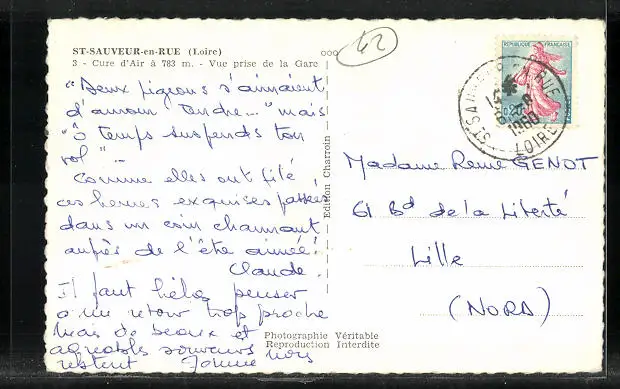 ST-SAUVEUR-en-RUE (Loire)
3 - Cure d'Air à 783 m. - Vue prise de la Gare
"Deux pigeons s'aimaient
d'amour tendre..." mais
"ô temps suspends ton
vol"...
Comme elles ont filé
ces heures exquises passées
dans un coin charmant
auprès de l'être aimé!
Claude.
Il faut hélas penser
à un retour trop proche
mais de beaux et
agréables souvenirs nous
restent
Edition Charroin
Photographie Véritable
Reproduction Interdite
42
REPUBLIQUE FRANÇAISE
ST SAUVEUR EN RUE
1960
LOIRE
Madame René GENOT
61 Bd de la Liberté
Lille
(NORD)